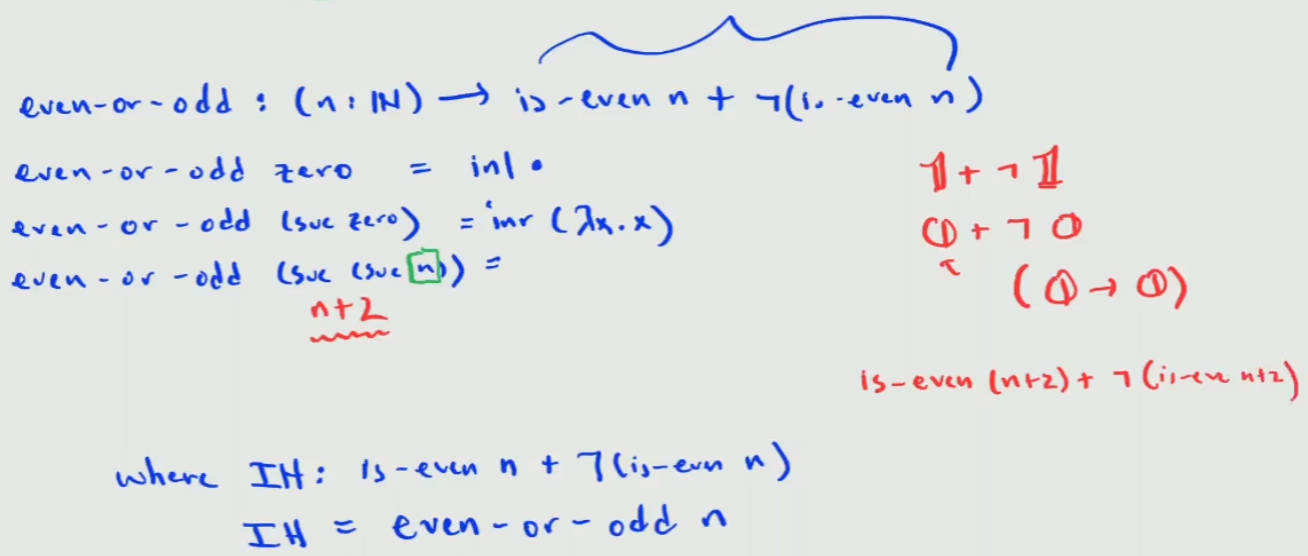 even-or-odd : (n : ℕ) → is-even n + ¬(is-even n)
even-or-odd zero = inl •
even-or-odd (suc zero) = inr (λx.x)
even-or-odd (suc (suc n)) =
n+2
𝟙 + ¬ 𝟙
𝟘 + ¬ 𝟘
(𝟘 → 𝟘)
is-even (n+2) + ¬ (is-eve n+2)
where IH : is-even n + ¬(is-even n)
IH = even-or-odd n